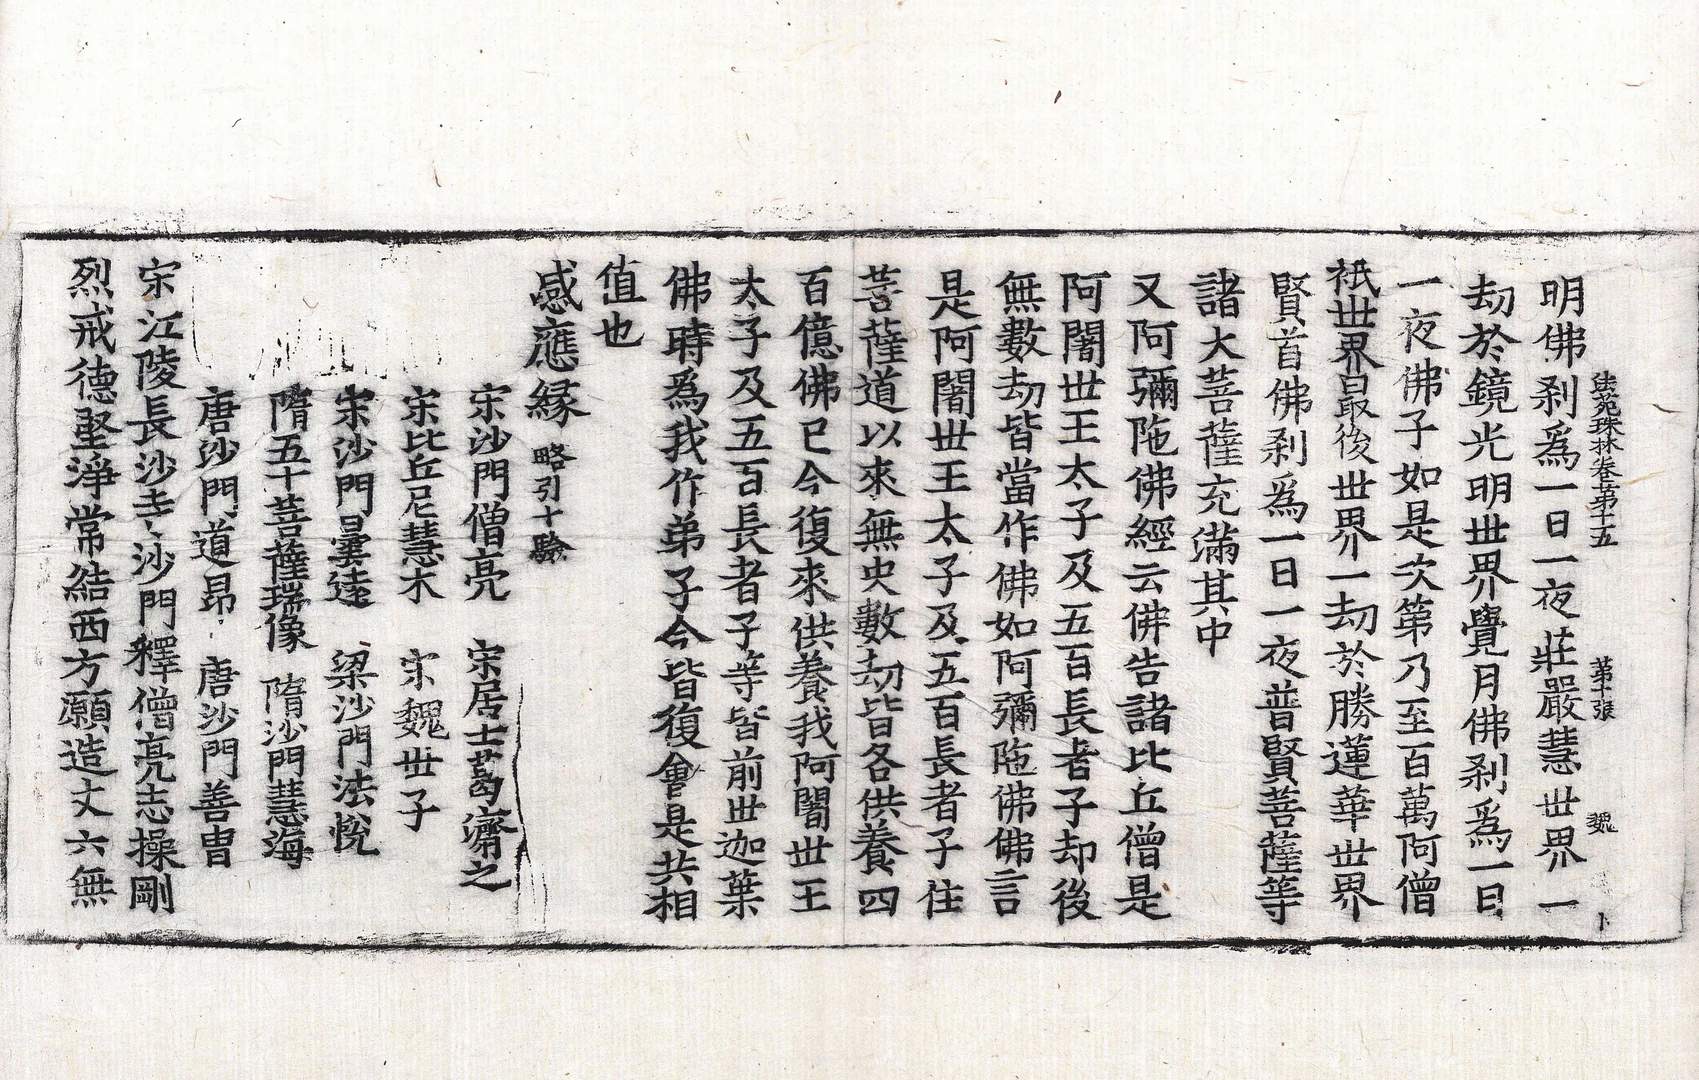 法苑珠林卷第十五 第十張 魏 卜
明佛剎爲一日一夜莊嚴慧世界一
劫於鏡光明世界覺月佛剎爲一日
一夜佛子如是次第乃至百萬阿僧
祇世界最後世界一劫於勝蓮華世界
賢首佛剎爲一日一夜普賢菩薩等
諸大菩薩充滿其中
又阿彌陁佛經云佛告諸比丘僧是
阿闍世王太子及五百長者子却後
無數劫皆當作佛如阿彌陁佛佛言
是阿闍世王太子及五百長者子住
菩薩道以來無央數劫皆各供養四
百億佛已今復來供養我阿闍世王
太子及五百長者子等皆前世迦葉
佛時爲我作弟子今皆復會是共相
值也
感應緣 略引十驗
宋沙門僧亮 宋居士葛濟之
宋比丘尼慧木 宋魏世子
宋沙門曇遠 梁沙門法悅
隋五十菩薩瑞像 隋沙門慧海
唐沙門道昂 唐沙門善冑
宋江陵長沙寺沙門釋僧亮志操剛
烈戒德堅淨常結西方願造丈六無